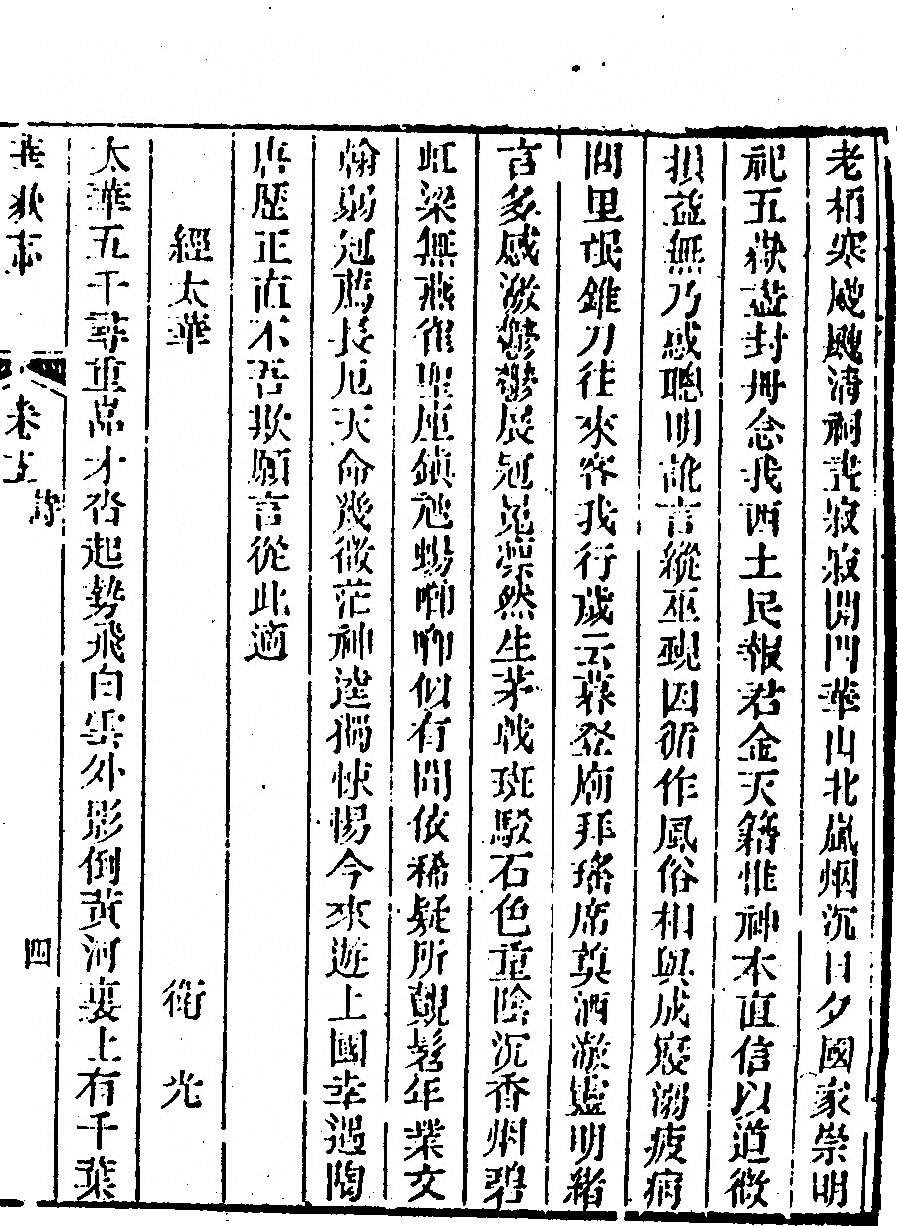 老柏寒飕飕清祠畫寂寂開門華山北嵐烟沉日夕國家崇明
祀五嶽並封冊念我西土民報君金天籍惟神本直信以道微
損益無乃惑聰明訛言縱巫覡因循作風俗相與成惑溺疲病
閭里氓錐刀往來客我行歲云暮登廟拜瑤席奠酒激靈明緒
言多感激鬱鬱展冠冕凜然生茅戟班駁石色重陰沉香烟碧
虹梁無燕雀聖座鎮虺蜴啾啾似有聞依稀疑所覿髫年業文
翰弱冠薦長厄天命幾微茫神逵獨悚惕今來遊上國幸遇陶
唐歷正直不吾欺願言從此適
經太華 衛光
太華五千尋重嵓才沓起勢飛白雲外影倒黃河裏上有千葉
華嶽志 卷五 詩 四